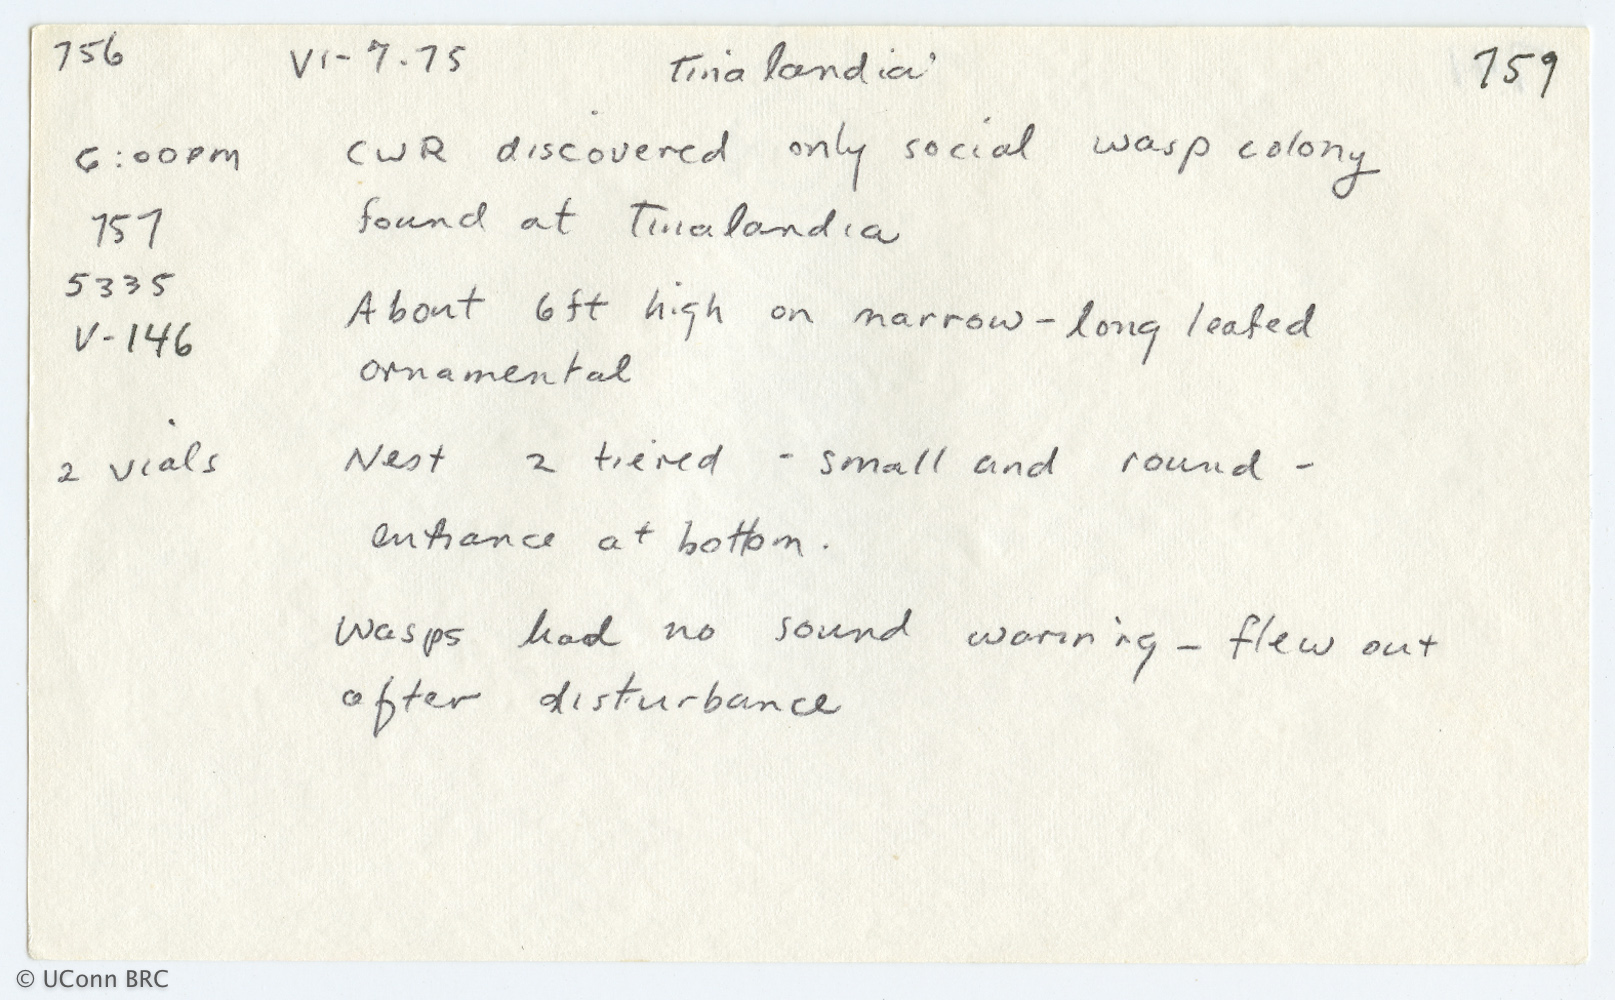 756 VI-7.75 Tinalandia 759
6:00PM CWR discovered only social wasp colony
757 found at Tinalandia
5335
V-146 About 6ft high on narrow-long leafed
ornamental
2 vials Nest 2 tiered - small and round -
entrance at bottom.
Wasps had no sound warning - flew out
after disturbance
© UConn BRC